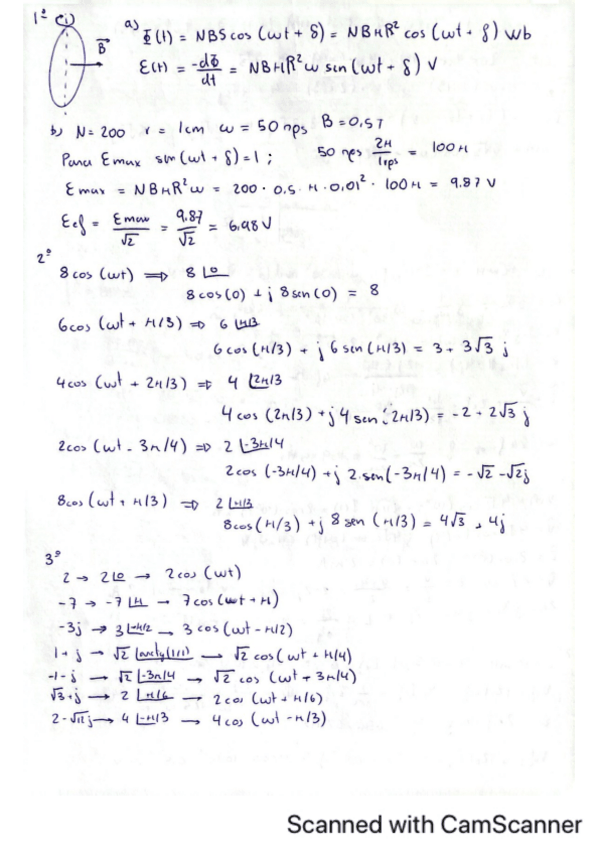 1º
a) Φ(t) = NBS cos (ωt + δ) = NBπR² cos (ωt + δ) Wb
B
ε(t) = -dΦ/dt = NBπR²ω sin (ωt + δ) V
b) N = 200 r = 1cm ω = 50 rps B = 0,5T
Para Emax sin (ωt + δ) = 1 ; 50 rps 2π/1rps = 100π
Emax = NBπR²ω = 200 · 0.5 · π · 0.01² · 100π = 9.87 V
Eef = Emax/√2 = 9.87/√2 = 6.98 V
2º
8 cos (ωt) ⇒ 8 ∠0
8 cos(0) + j 8 sen(0) = 8
6 cos (ωt + π/3) ⇒ 6 ∠π/3
6 cos (π/3) + j 6 sen (π/3) = 3 + 3√3 j
4 cos (ωt + 2π/3) ⇒ 4 ∠2π/3
4 cos (2π/3) + j 4 sen (2π/3) = -2 + 2√3 j
2cos (ωt - 3π/4) ⇒ 2 ∠-3π/4
2cos (-3π/4) + j 2·sen(-3π/4) = -√2 -√2j
8cos (ωt + π/3) ⇒ 2 ∠π/3
8cos(π/3) + j 8 sen (π/3) = 4√3 + 4j
3º
2 → 2∠0 → 2cos (ωt)
-7 → -7 ∠π → 7cos (ωt + π)
-3j → 3 ∠-π/2 → 3 cos (ωt - π/2)
1 + j → √2 ∠arctg(1/1) → √2 cos (ωt + π/4)
-1 - j → √2 ∠-3π/4 → √2 cos (ωt + 3π/4)
√3 + j → 2 ∠π/6 → 2cos (ωt + π/6)
2 - √12j → 4 ∠-π/3 → 4cos (ωt - π/3)
Scanned with CamScanner